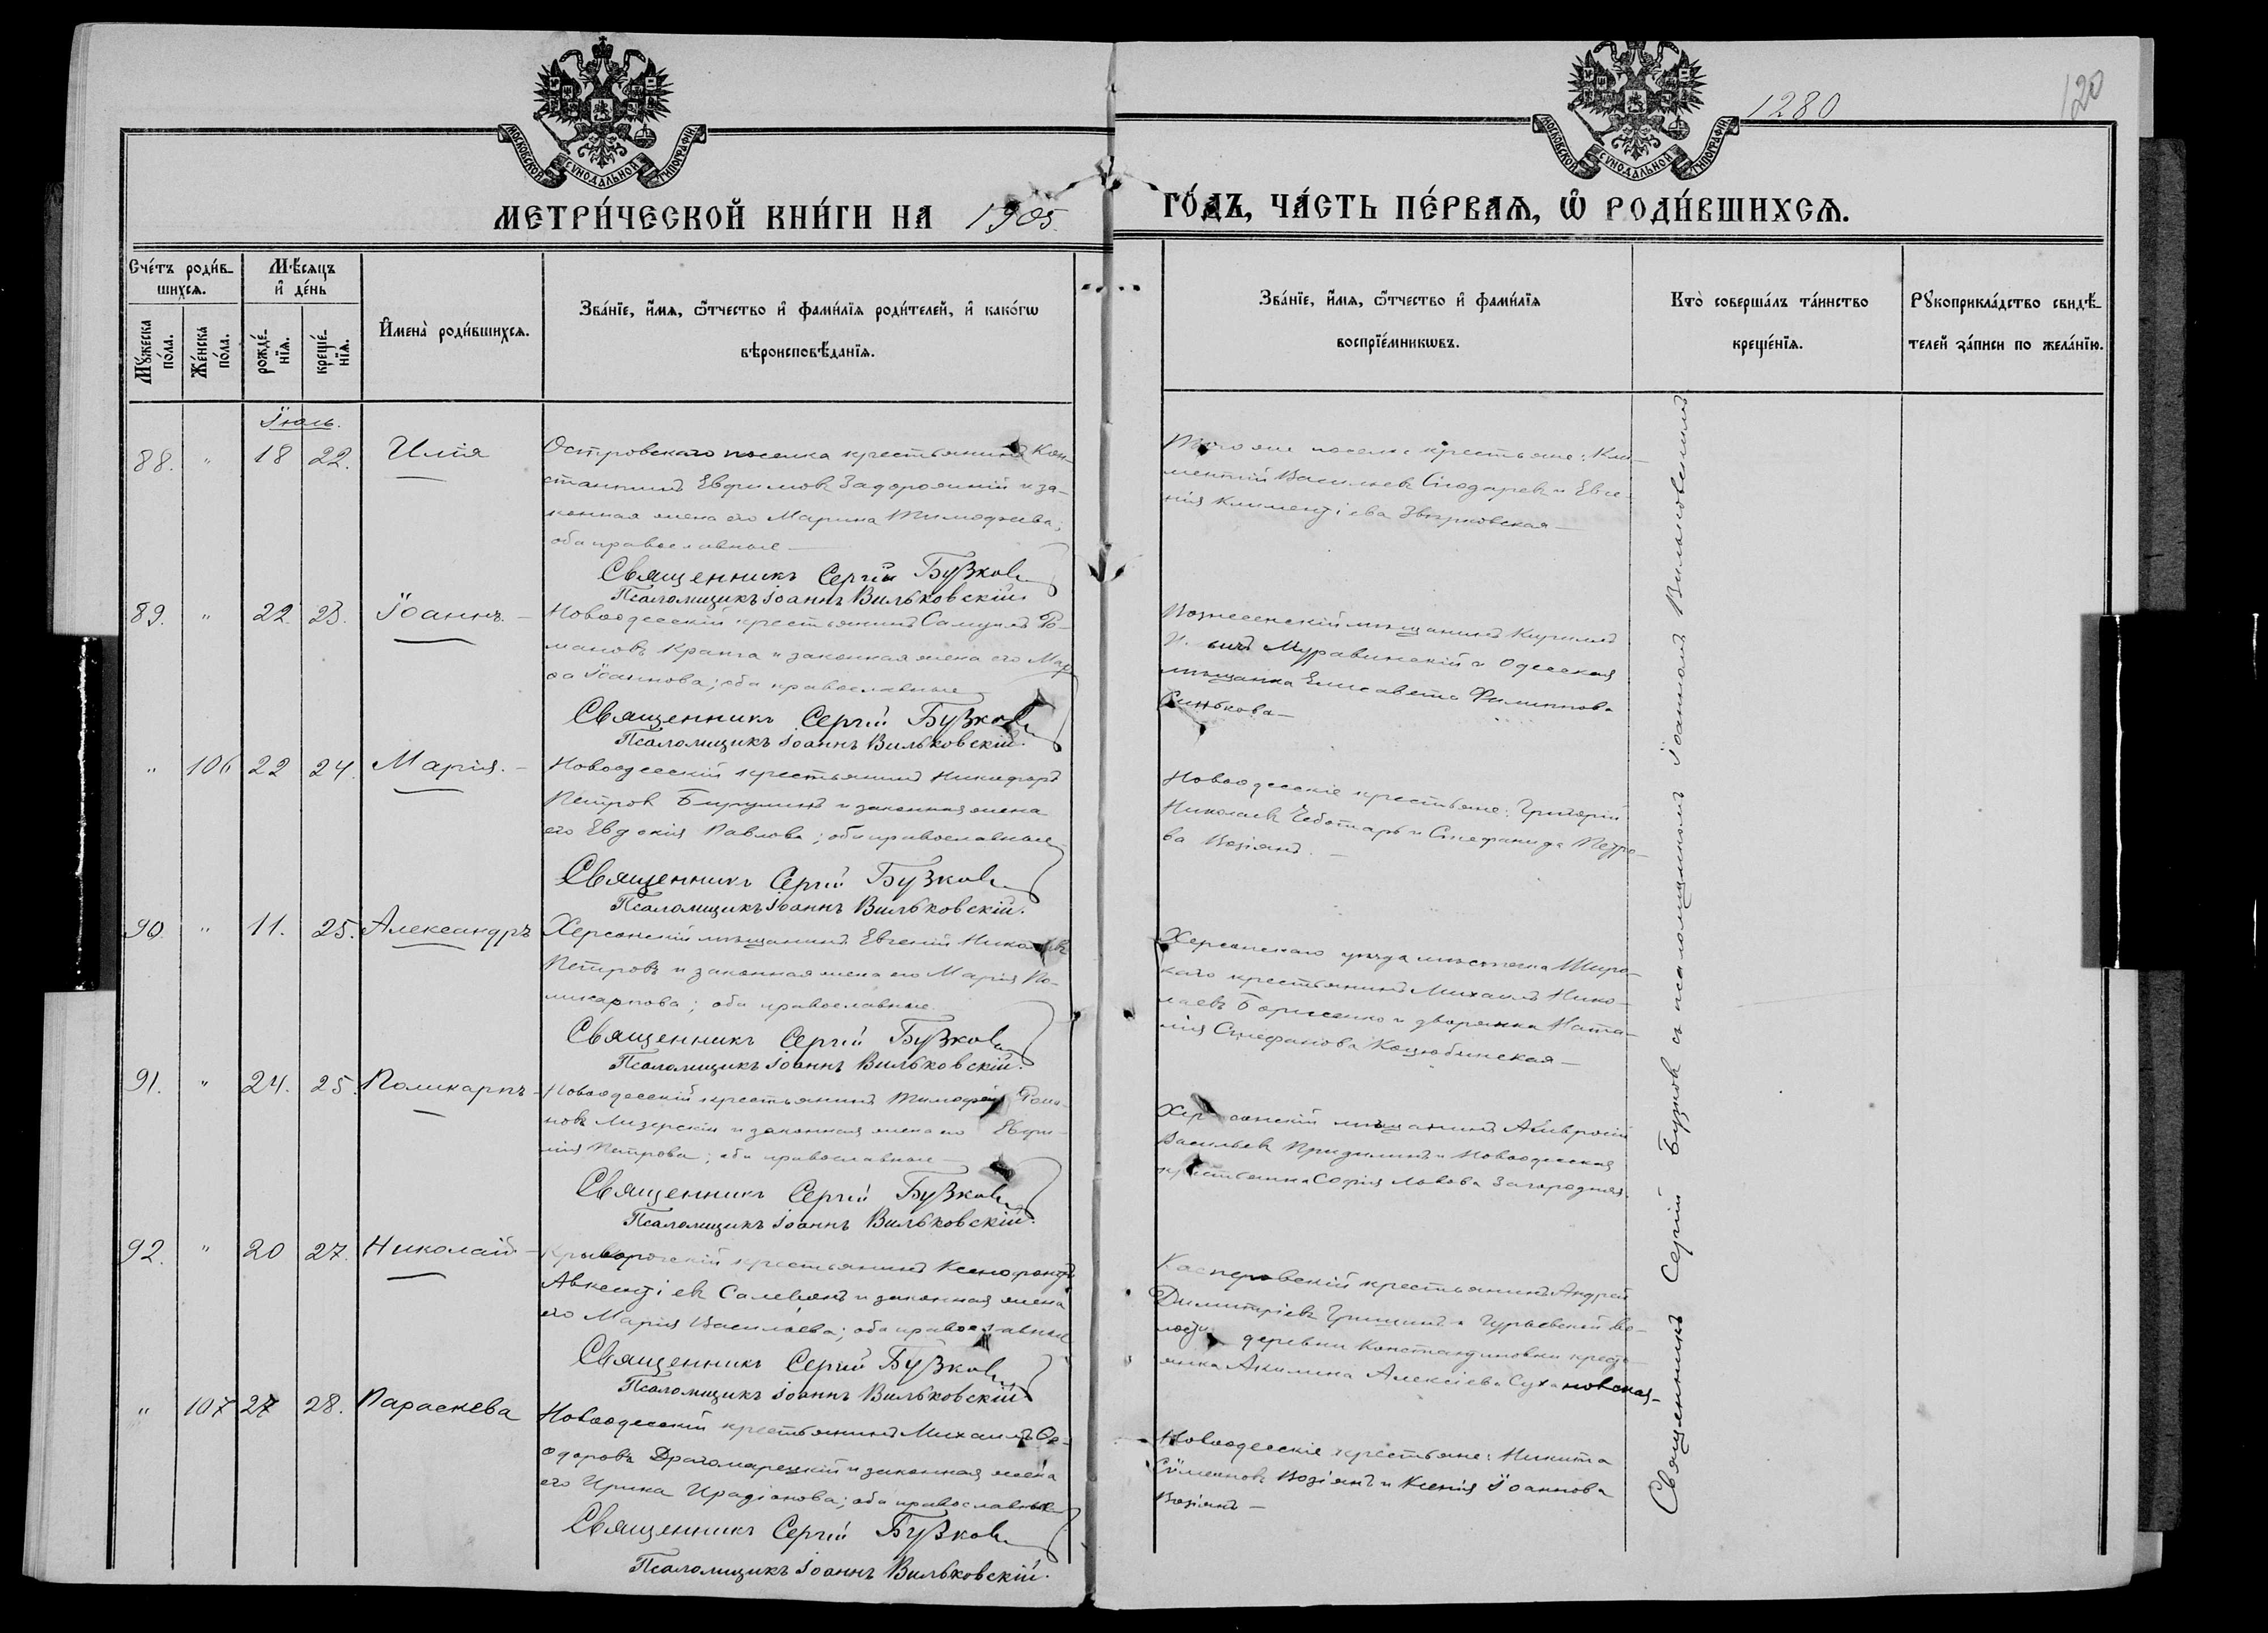 МОСКОВСКОЙ СУНОДАЛЬНОЙ ТИПОГРАФІИ
МОСКОВСКОЙ СУНОДАЛЬНОЙ ТИПОГРАФІИ
1280
120
МЕТРИ́ЧЕСКОЙ КНИ́ГИ НА 1905. ГО́ДЪ, ЧА́СТЬ ПЕ́РВАѦ, Ѡ҆ РОДИ́ВШИХСѦ.
Сче́тъ роди́в-
шихсѧ.
Мꙋ́жеска по́ла.
Же́нска по́ла.
Мѣ́сѧцъ
и҆ де́нь
рожде́-
нїѧ.
креще́-
нїѧ.
И҆мена̀ роди́вшихсѧ.
Зва́нїе, и҆́мѧ, ѻ҆́тчество и҆ фами́лїѧ роди́телей, и҆ како́гѡ
вѣроисповѣ́данїѧ.
Зва́нїе, и҆́мѧ, ѻ҆́тчество и҆ фами́лїѧ
воспрїе́мникѡвъ.
Кто̀ соверша́лъ та́инство
креще́нїѧ.
Рꙋкоприкла́дство свидѣ́-
телей за́писи по жела́нїю.
Іюль.
88. " 18 22. Илія
Островскаго поселка крестьянинъ Кон-
стантинъ Евфимовъ Задорожній и за-
конная жена его Марина Тимофеева;
оба православные
Священникъ Сергій Бузковъ
Псаломщикъ Іоаннъ Вильковскій.
крестьяне: Кли-
ментій Васильевъ и Евге-
нія Климентіева
89. " 22. 23. Іоаннъ.
Новоодесскій крестьянинъ Самуилъ Ро-
мановъ Кранга и законная жена его
Іоаннова; оба православные
Священникъ Сергій Бузковъ
Псаломщикъ Іоаннъ Вильковскій.
Вознесенскій мѣщанинъ Кириллъ
Муравинскій и Одесская
мѣщанка Елисавета Филиппова
Синькова
" 106 22 24. Марія.
Новоодесскій крестьянинъ Никифоръ
Петровъ и законная жена
его Евдокія Павлова; оба православные
Священникъ Сергій Бузковъ
Псаломщикъ Іоаннъ Вильковскій.
Новоодесскіе крестьяне: Григорій
Николаевъ Чеботарь и Стефанида Петро-
ва Возіянъ.
90. " 11. 25. Александръ
Херсонскій мѣщанинъ Евгеній Николаевъ
Петровъ и законная жена его Марія По-
ликарпова; оба православные.
Священникъ Сергій Бузковъ
Псаломщикъ Іоаннъ Вильковскій.
Херсонскаго уѣзда мѣстечка Широ-
каго крестьянинъ Михаилъ Нико-
лаевъ Борисенко и дворянка Ната-
лія Стефанова Коцюбинская
91. " 24. 25. Поликарпъ
Новоодесскій крестьянинъ Тимофей
Лизерскій и законная жена его Евфи-
мія Петрова; оба православные
Священникъ Сергій Бузковъ
Псаломщикъ Іоаннъ Вильковскій.
Херсонскій мѣщанинъ Амвросій
Васильевъ и Новоодесская
крестьянка Софія Львова Загородняя.
92. " 20 27. Николай
крестьянинъ Ксенофонтъ
Авксентіевъ и законная жена
его Марія Васильева; оба православные
Священникъ Сергій Бузковъ
Псаломщикъ Іоаннъ Вильковскій
Касперовскій крестьянинъ Андрей
Димитріевъ Грищинъ и Гурьевской Во-
лости деревни Константиновки кресть-
янка Акилина Алексіева Сухановская
" 107 27 28. Параскева
Новоодесскій крестьянинъ Михаилъ Ѳе-
одоровъ Драгомарецкій и законная жена
его Ирина Иродіонова; оба православные
Священникъ Сергій Бузковъ
Псаломщикъ Іоаннъ Вильковскій.
Новоодесскіе крестьяне: Никита
Сѵмеоновъ Возіянъ и Ксенія Іоаннова
Возіянъ
Священникъ Сергій Бузковъ съ псаломщикомъ Іоанномъ Вильковскимъ